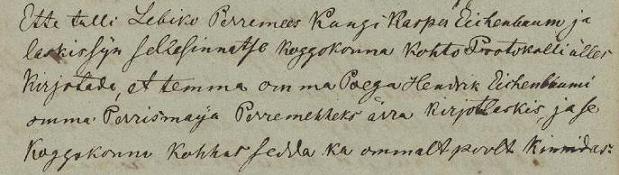 Ette tulli Lebiko Perremees Kangi Kaspar Eichenbaum ja
laskis syn sellesinnatse koggokonna Kohto Protokolli ülles
Kirjotada, et temma om ma Poega Hendrik Eichenbaumi
omma Perrismaija Perremehheks ärra Kirjotlaskis, ja se
Koggokonna Kohhus sedda ka ommalt poolt Kinnidas.